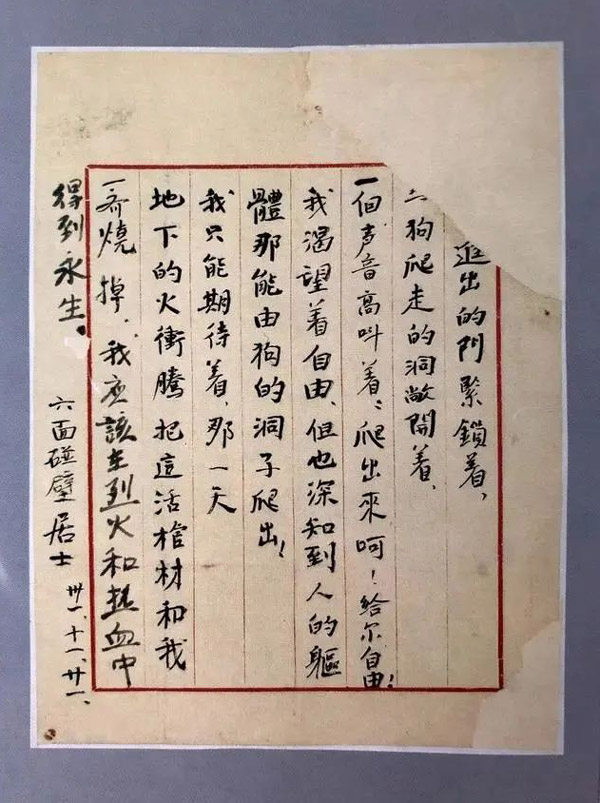 出的门緊鎖着、
狗爬走的洞敞開着、
一個声音高叫着:爬出來呵!给尔自由!
我渴望着自由、但也深知到人的軀
體那能由狗的洞子爬出!
我只能期待着,那一天
地下的火衝騰把這活棺材和我
一齊燒掉、我应該在烈火和热血中
得到永生。
六面碰壁居士 卅一、十一、廿一、